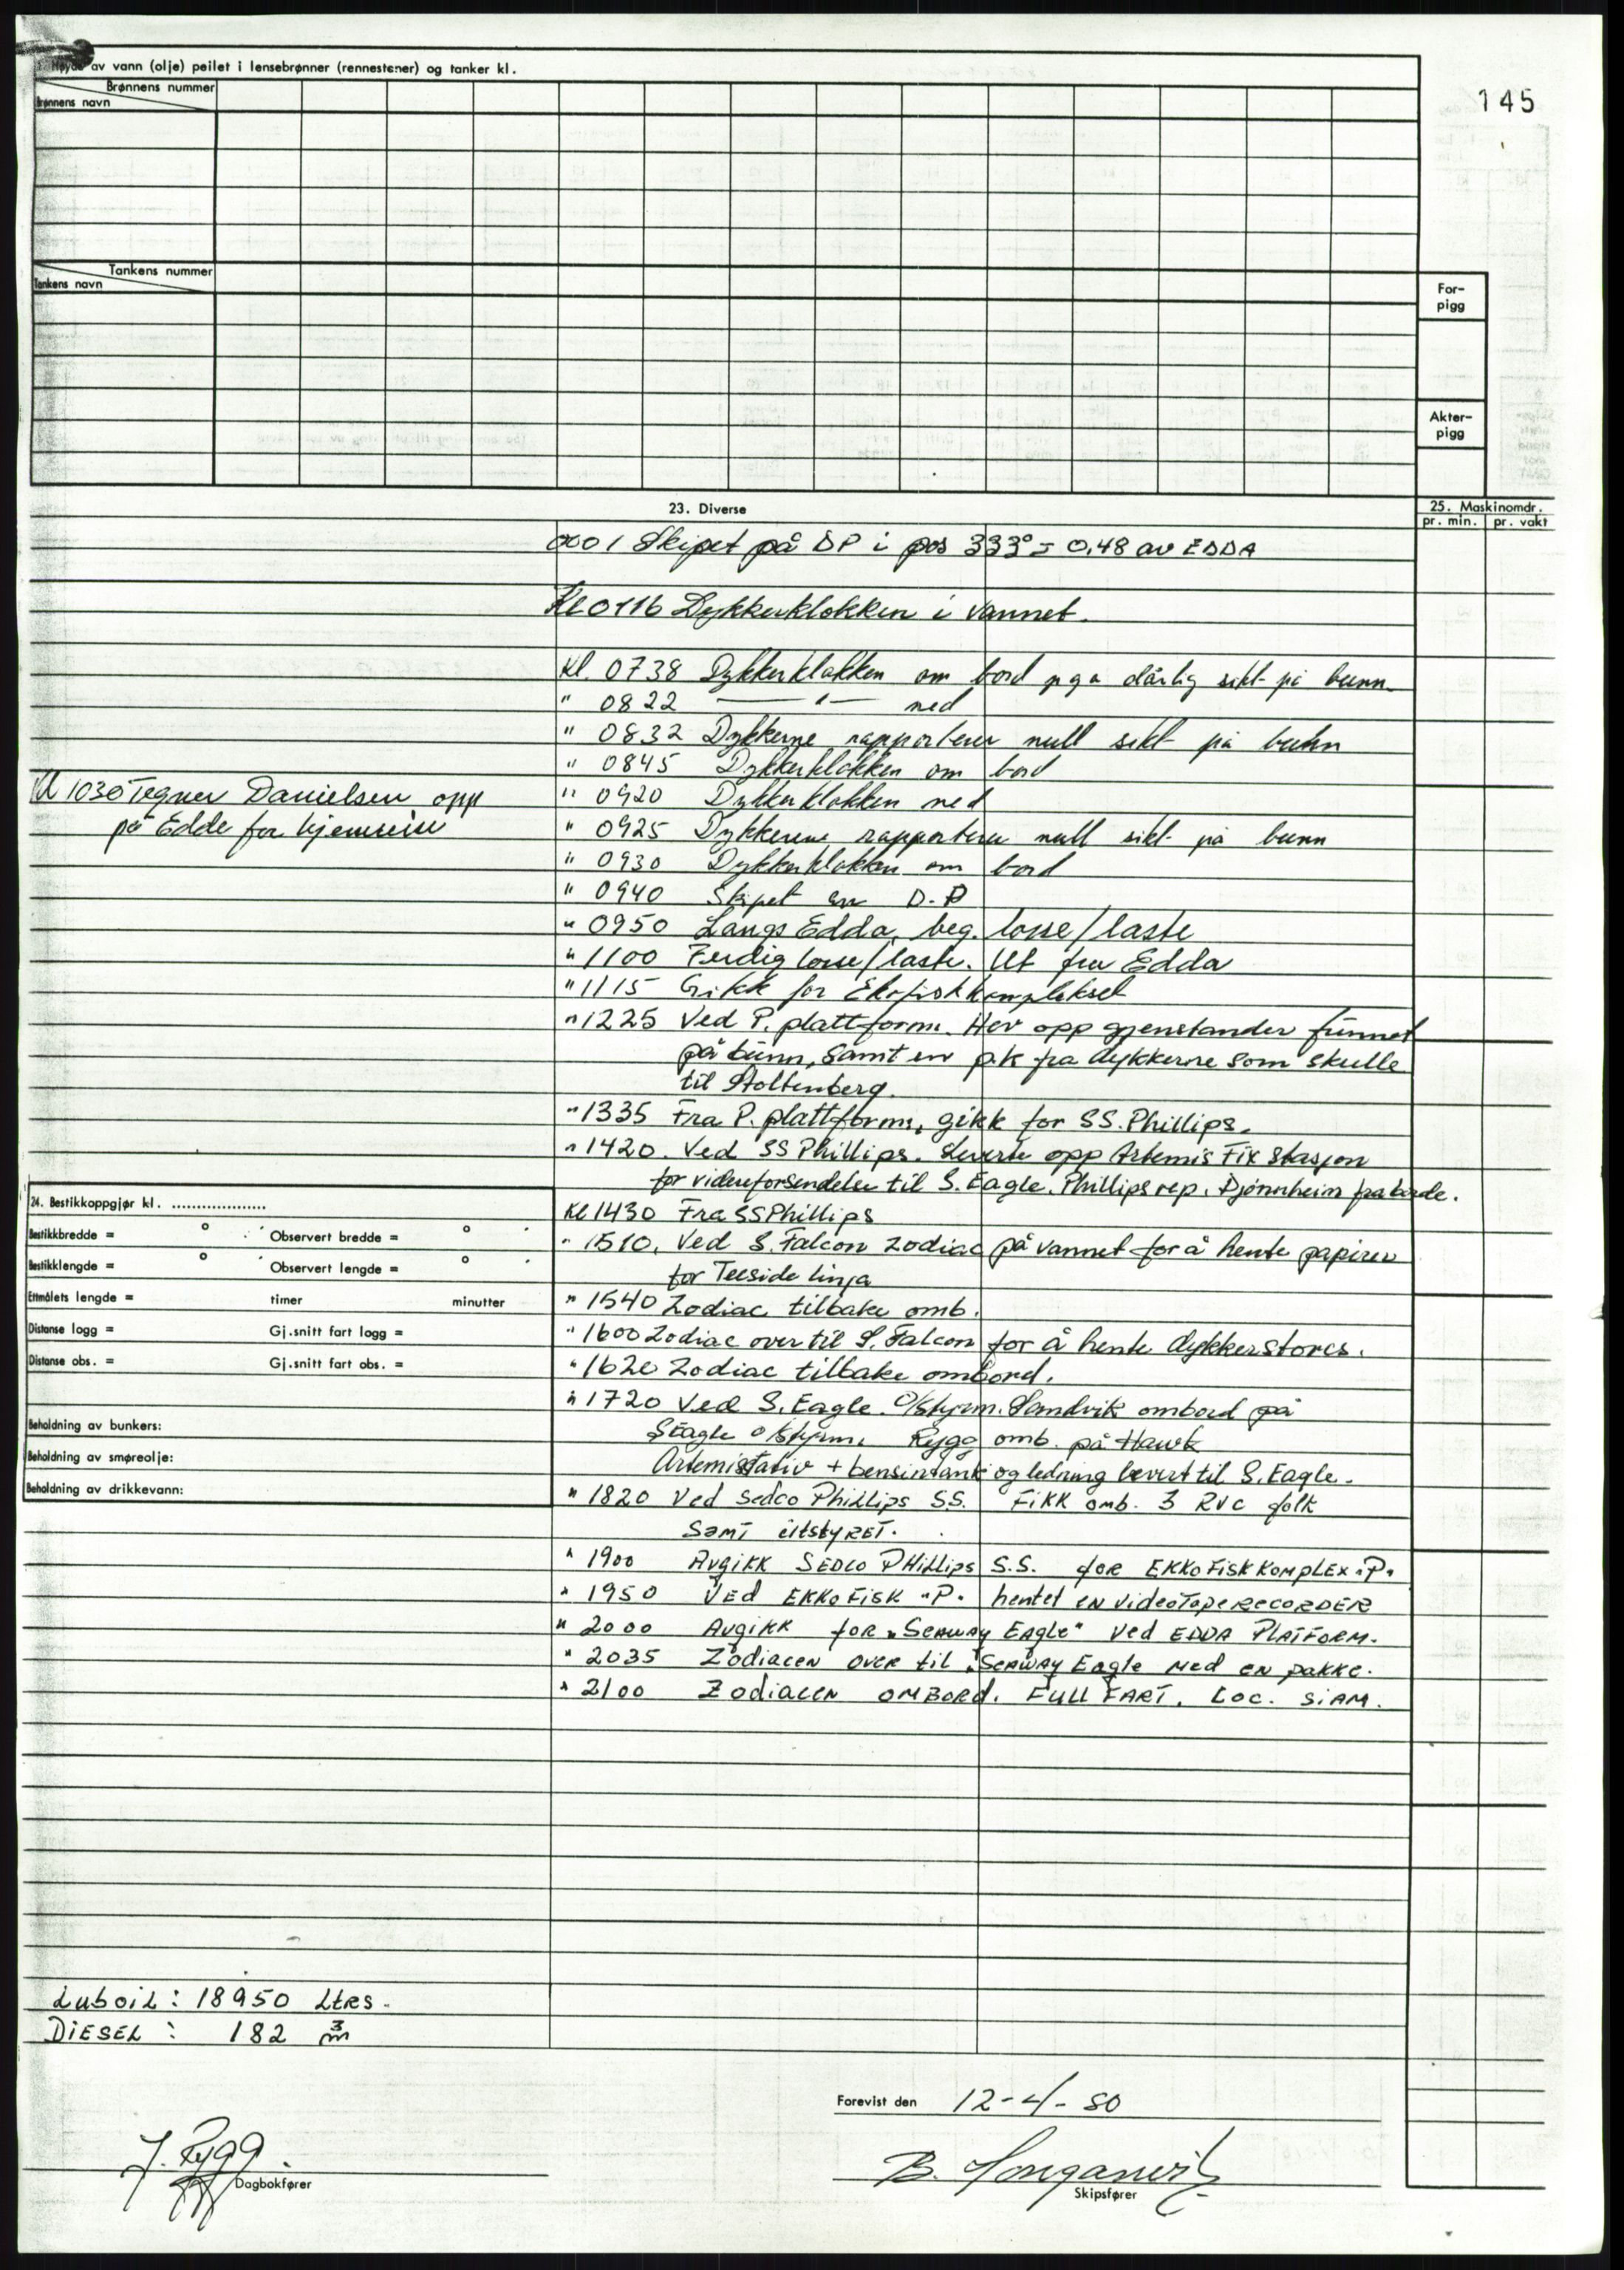 145
Høyde av vann (olje) peilet i lensebrønner (rennestener) og tanker kl.
Brønnens nummer
Brønnens navn
Tankens nummer
Tankens navn
For-
pigg
Akter-
pigg
23. Diverse
25. Maskinomdr.
pr. min. pr. vakt
0001 Skipet på DP i pos 333° = 0,48 av EDDA
Kl 0116 Dykkerklokken i vannet.
Kl. 0738 Dykkerklokken om bord pga dårlig sikt på bunn.
" 0822 — " — ned
" 0832 Dykkerne rapporterer null sikt på bunn
" 0845 Dykkerklokken om bord
Kl 1030 Tegner Danielsen opp
på Edda for hjemreise
" 0920 Dykkerklokken ned
" 0925 Dykkerene rapporterer null sikt på bunn
" 0930 Dykkerklokken om bord
" 0940 Skipet av D.P
" 0950 Langs Edda, beg. losse/laste
" 1100 Ferdig losse/laste. Ut fra Edda
" 1115 Gikk for Ekofiskkomplekset
" 1225 Ved P. plattform. Hev opp gjenstander funnet
på bunn, samt en pk fra dykkerne som skulle
til Stoltenberg.
" 1335 Fra P. plattform, gikk for SS. Phillips.
" 1420. Ved SS Phillips. Leverte opp Artemis Fix stasjon
for videreforsendelse til S. Eagle. Phillips rep. Djønnheim fra borde.
Kl 1430 Fra SS Phillips
" 1510. Ved S. Falcon Zodiac på vannet for å hente papirer
for Teeside linja
" 1540 Zodiac tilbake omb.
" 1600 Zodiac over til S. Falcon for å hente dykkerstores.
" 1620 Zodiac tilbake ombord.
" 1720 Ved S. Eagle. O/styrm. Sandvik ombord på
S Eagle o/styrm. Rygg omb. på Hawk
Artemisstativ + bensintank og ledning levert til S. Eagle.
" 1820 Ved Sedco Phillips S.S. Fikk omb. 3 RVC folk
samt utstyret.
" 1900 Avgikk SEDCO PHillips S.S. for EKKOFiSKKOMPLEX "P"
" 1950 VED EKKOFiSK "P" hentet en videoTapeRECORDER
" 2000 Avgikk for "SEAWAY EAgle" Ved EDDA PLATFORM.
" 2035 Zodiacen over til "SEAWAY Eagle med en pakke.
" 2100 Zodiacen OMBORd. FULL FART. Loc. SiAM.
24. Bestikkoppgjør kl. ...................
Bestikkbredde = ° ' Observert bredde = ° '
Bestikklengde = ° ' Observert lengde = ° '
Ettmålets lengde = timer minutter
Distanse logg = Gj.snitt fart logg =
Distanse obs. = Gj.snitt fart obs. =
Beholdning av bunkers:
Beholdning av smøreolje:
Beholdning av drikkevann:
Luboil: 18950 Ltrs.
DiESEL: 182 m3
Forevist den 12-4-80
J. Rygg
Dagbokfører
Skipsfører